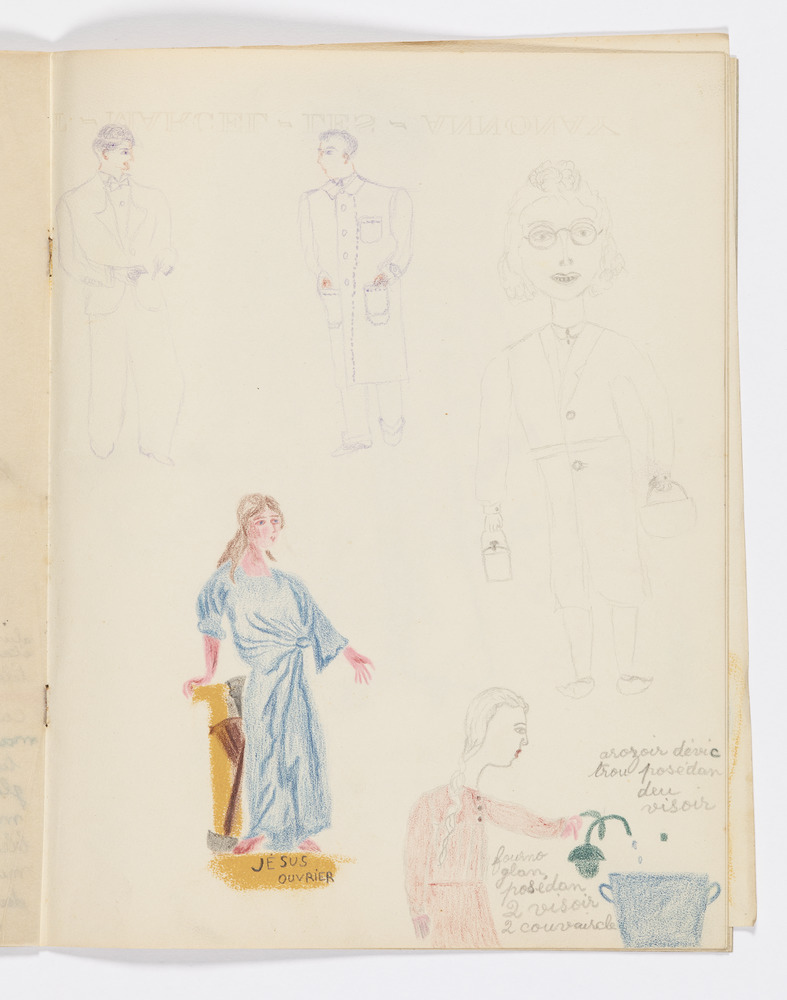 MARCEL - LES - ANNONAY
JÉSUS
OUVRIER
arozoir dévic
trou posédan
deu
visoir
fourno
glan
posédan
2 visoir
2 couvaircle